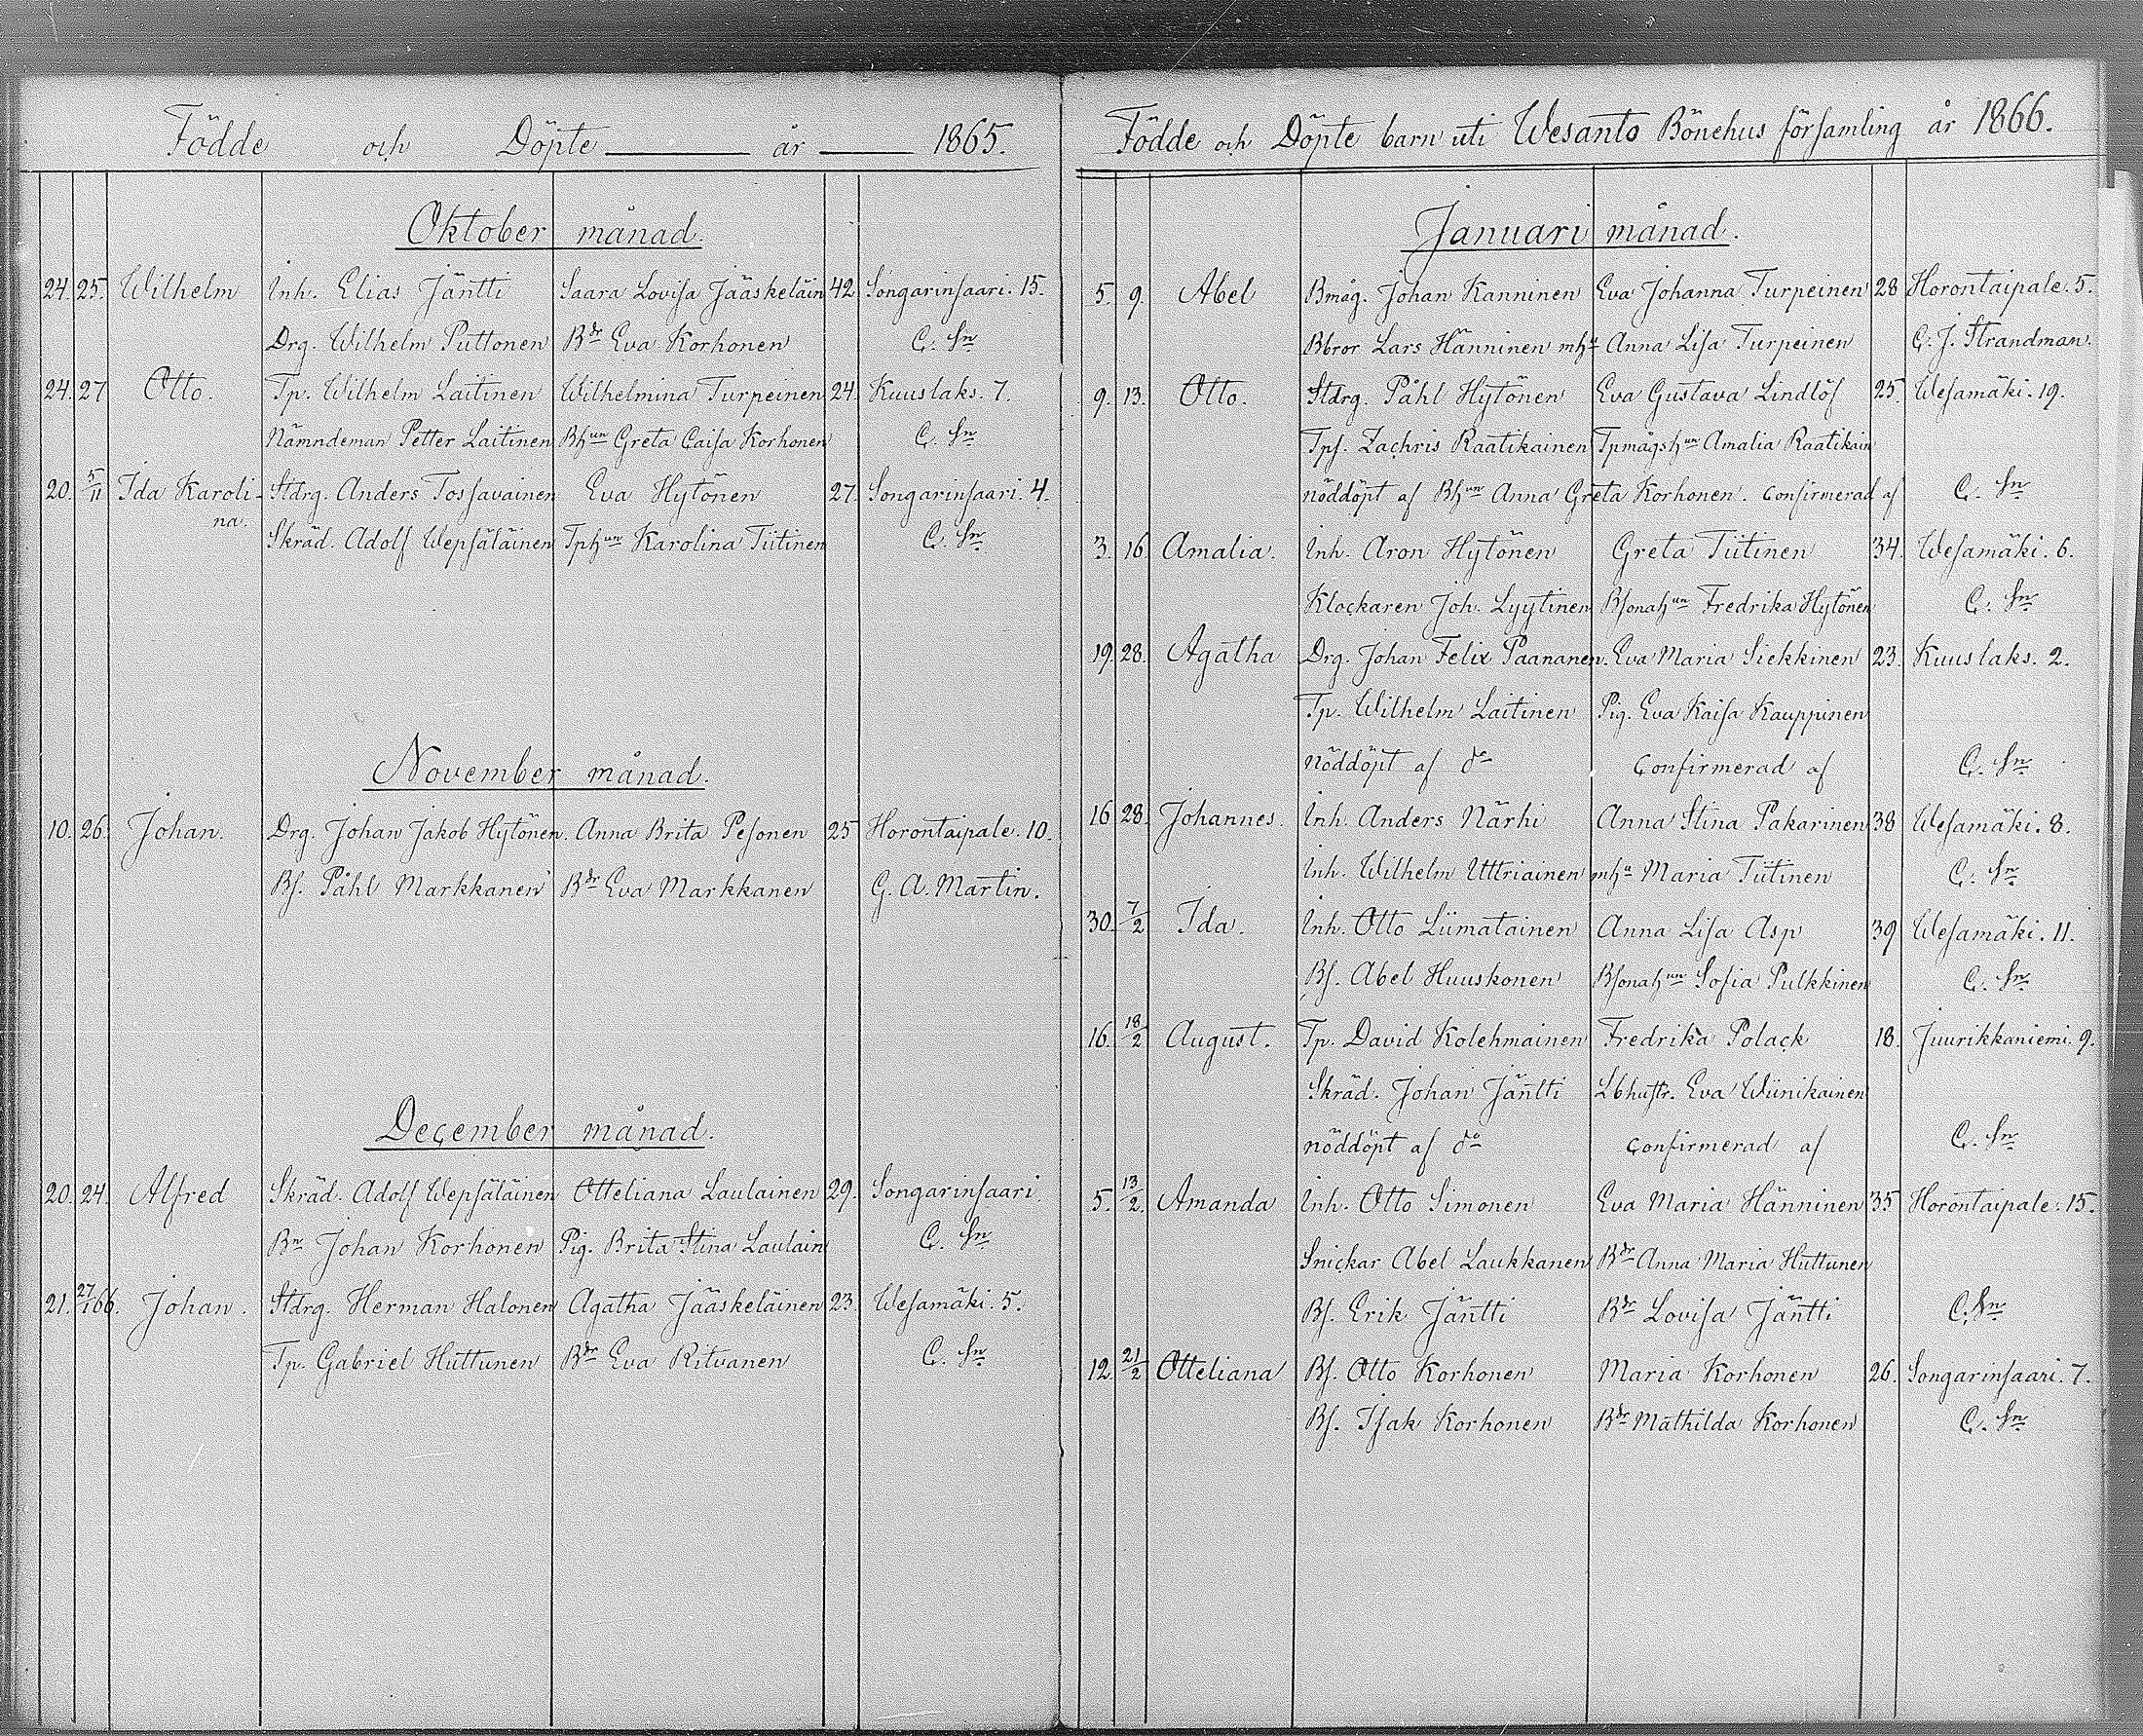 Födde och Döpte år 1865.
Oktober månad.
24. 25. Wilhelm Inh. Elias Jäntti Saara Lovisa Jääskeläin 42 Songarinsaari. 15.
Drg. Wilhelm Puttonen Bdr Eva Korhonen C. Sn
24. 27 Otto. Tp. Wilhelm Laitinen Wilhelmina Turpeinen 24. Kuuslaks. 7.
Nämndeman Petter Laitinen Bhun Greta Caisa Korhonen C. Sn
20. 5/11 Ida Karoli- Stdrg. Anders Tossavainen Eva Hytönen 27. Songarinsaari. 4.
na. Skräd. Adolf Wepsäläinen Tphun Karolina Tiitinen C. Sn
November månad.
10. 26. Johan. Drg. Johan Jakob Hytönen. Anna Brita Pesonen 25 Horontaipale. 10.
Bs. Påhl Markkanen Bdr Eva Markkanen G. A. Martin.
December månad.
20. 24. Alfred Skräd. Adolf Wepsäläinen Otteliana Laulainen 29. Songarinsaari.
Bn Johan Korhonen Pig. Brita Stina Laulain C. Sn
21. 27/1 66. Johan. Stdrg. Herman Halonen Agatha Jääskeläinen 23. Wesamäki. 5.
Tp. Gabriel Huttunen Bdr Eva Ritvanen C. Sn
Födde och Döpte barn uti Wesanto Bönehus församling år 1866.
Januari månad.
5. 9. Abel Bmåg. Johan Kanninen Eva Johanna Turpeinen 28 Horontaipale. 5.
Bbror Lars Hänninen mhu Anna Lisa Turpeinen C. J. Strandman.
9. 13. Otto. Stdrg. Påhl Hytönen Eva Gustava Lindlöf 25. Wesamäki. 19.
Tps. Zachris Raatikainen Tpmågshun Amalia Raatikain
nöddöpt af Bhun Anna Greta Korhonen. Confirmerad af C. Sn
3. 16. Amalia. Inh. Aron Hytönen Greta Tiitinen 34. Wesamäki. 6.
Klockaren Joh. Lyytinen Bsonahun Fredrika Hytönen C. Sn
19. 28. Agatha Drg. Johan Felix Paananen. Eva Maria Siekkinen 23. Kuuslaks. 2.
Tp. Wilhelm Laitinen Pig. Eva Kaisa Kauppinen
nöddöpt af do Confirmerad af C. Sn
16 28. Johannes. Inh. Anders Närhi Anna Stina Pakarinen 38 Wesamäki. 8.
Inh. Wilhelm Uttriainen mhu Maria Tiitinen C. Sn
30. 7/2 Ida. Inh. Otto Liimatainen Anna Lisa Asp 39 Wesamäki. 11.
Bs. Abel Huuskonen Bsonahun Sofia Pulkkinen C. Sn
16. 18/2 August. Tp. David Kolehmainen Fredrika Polack 18. Juurikkaniemi. 9.
Skräd. Johan Jäntti Lbhustr. Eva Wiinikainen
nöddöpt af do Confirmerad af C. Sn
5. 13/2. Amanda Inh. Otto Simonen Eva Maria Hänninen 35 Horontaipale. 15.
Snickar Abel Laukkanen Bdr Anna Maria Huttunen
Bs. Erik Jäntti Bdr Lovisa Jäntti C. Sn
12. 21/2 Otteliana Bs. Otto Korhonen Maria Korhonen 26. Songarinsaari. 7.
Bs. Isak Korhonen Bdr Mathilda Korhonen C. Sn